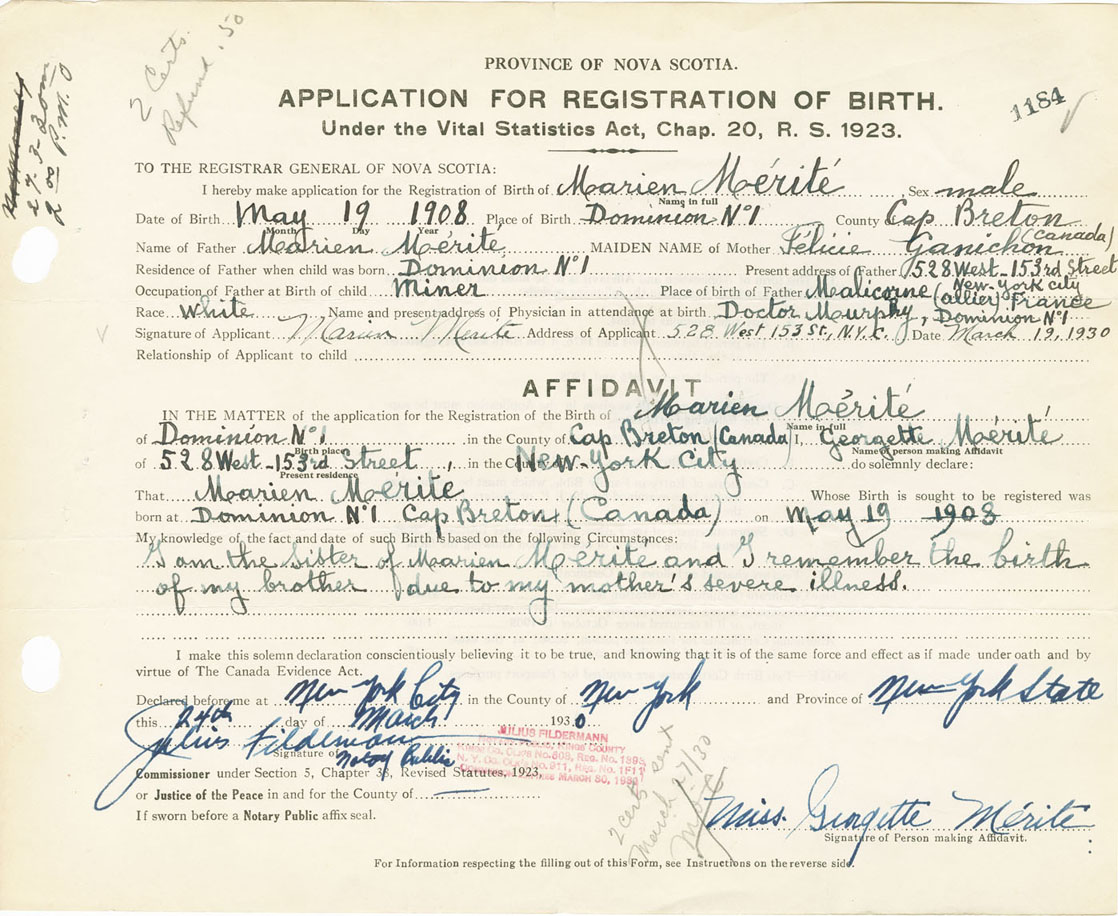 2 Certs.
Refund .50
27-3-30
2 00 P.M.O
PROVINCE OF NOVA SCOTIA.
APPLICATION FOR REGISTRATION OF BIRTH.
1184
Under the Vital Statistics Act, Chap. 20, R. S. 1923.
TO THE REGISTRAR GENERAL OF NOVA SCOTIA:
I hereby make application for the Registration of Birth of Marien Mérité Sex male
Name in full
Date of Birth May 19 1908 Place of Birth Dominion N°1 County Cap Breton
Month Day Year
(Canada)
Name of Father Marien Mérité MAIDEN NAME of Mother Félicie Ganichon
Residence of Father when child was born Dominion N°1 Present address of Father 528 West-153rd Street
New-York city
Occupation of Father at Birth of child Miner Place of birth of Father Malicorne (allier) France
Race White Name and present address of Physician in attendance at birth Doctor Murphy, Dominion N°1
Signature of Applicant Marien Merite Address of Applicant 528 West 153 St., N.Y.C. Date March 19, 1930
Relationship of Applicant to child
AFFIDAVIT
IN THE MATTER of the application for the Registration of the Birth of Marien Mérité
Name in full
of Dominion N°1 in the County of Cap Breton (Canada) I, Georgette Mérité
Birth place
Name of person making Affidavit
of 528 West-153rd Street, in the County New-York City do solemnly declare:
Present residence
That Marien Mérité Whose Birth is sought to be registered was
born at Dominion N°1 Cap Breton (Canada) on May 19 1908
My knowledge of the fact and date of such Birth is based on the following Circumstances:
I am the Sister of Marien Mérité and I remember the birth
of my brother due to my mother's severe illness.
I make this solemn declaration conscientiously believing it to be true, and knowing that it is of the same force and effect as if made under oath and by
virtue of The Canada Evidence Act.
Declared before me at New York City in the County of New York and Province of New York State
this 24th day of March 1930
Julius Fildermann
Signature of Notary Public
JULIUS FILDERMANN
KINGS COUNTY
Kings Co. Clks No. 808, Reg. No.
N. Y. Co. Clks No. 911, Reg. No. 1F11
EXPIRES MARCH 30,
Commissioner under Section 5, Chapter 38, Revised Statutes, 1923,
or Justice of the Peace in and for the County of
If sworn before a Notary Public affix seal.
2 certs sent
March 27/30
Miss. Georgette Mérité
Signature of Person making Affidavit.
For Information respecting the filling out of this Form, see Instructions on the reverse side.